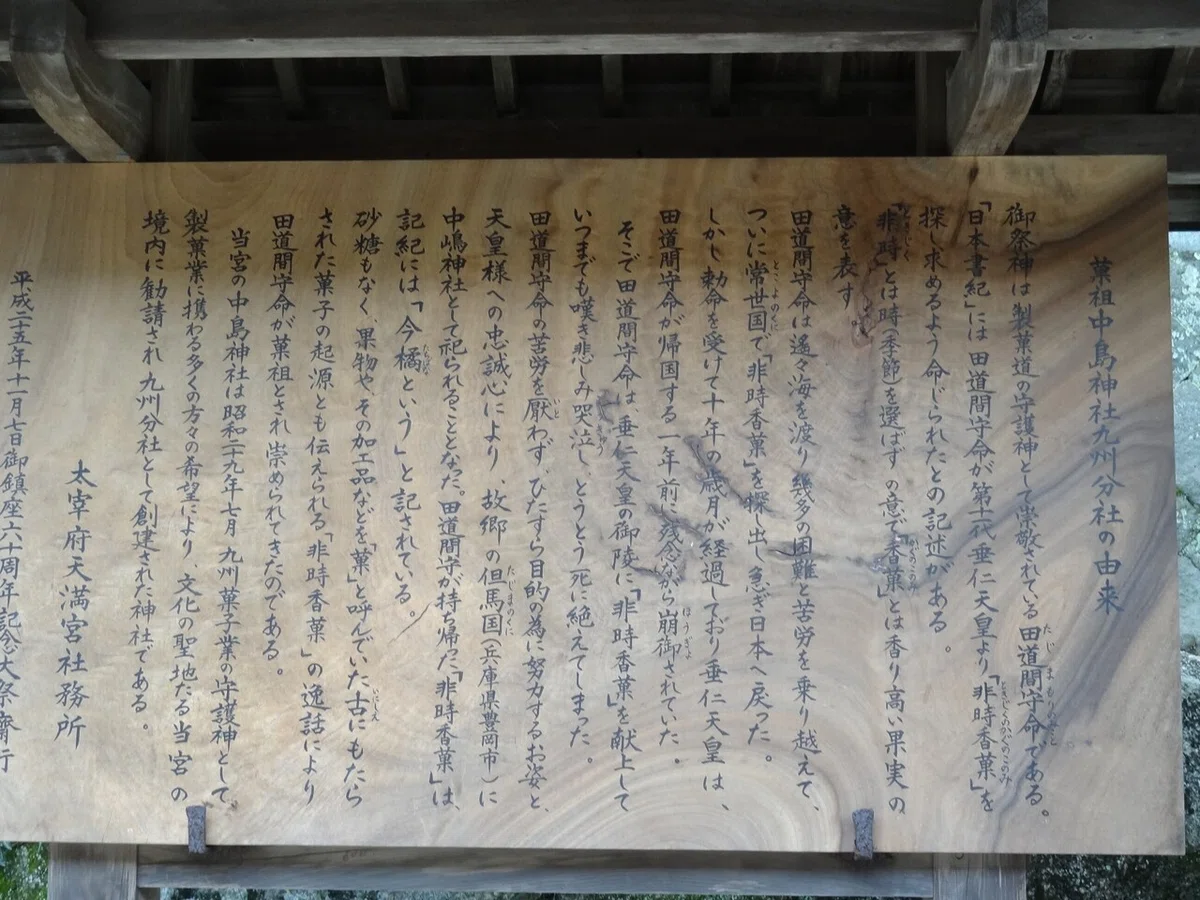 菓祖中島神社九州分社の由来
御祭神は製菓道の守護神として崇敬されている田道間守命である。
「日本書紀」には田道間守命が第十一代垂仁天皇より「非時香菓」を
探し求めるよう命じられたとの記述がある。
「非時」とは時(季節)を選ばずの意で「香菓」とは香り高い果実の
意を表す
田道間守命は遥々海を渡り幾多の困難と苦労を乗り越えて、
ついに常世国で「非時香菓」を探し出し急ぎ日本へ戻った。
しかし勅命を受けて十年の歳月が経過しており垂仁天皇は、
田道間守命が帰国する一年前に残念ながら崩御されていた。
そこで田道間守命は、垂仁天皇の御陵に「非時香菓」を献上して
いつまでも嘆き悲しみ哭泣し、とうとう死に絶えてしまった。
田道間守命の苦労を厭わず、ひたすら目的の為に努力するお姿と、
天皇様への忠誠心により、故郷の但馬国(兵庫県豊岡市)に
中嶋神社として祀られることとなった。田道間守が持ち帰った「非時香菓」は、
記紀には「今橘という」と記されている。
砂糖もなく、果物や、その加工品などを「菓」と呼んでいた古にもたら
された菓子の起源とも伝えられる「非時香菓」の逸話により
田道間守命が菓祖とされ崇められてきたのである。
当宮の中島神社は昭和二十九年七月 九州菓子業の守護神として、
製菓業に携わる多くの方々の希望により、文化の聖地たる当宮の
境内に勧請され九州分社として創建された神社である。
太宰府天満宮社務所
平成二十五年十一月七日御鎮座六十周年記念大祭斎行